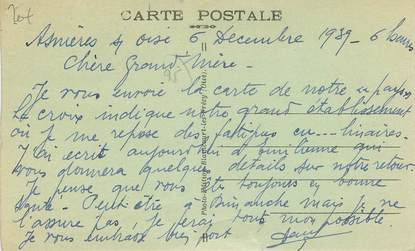 CARTE POSTALE
Asnières s/ oise 6 Décembre 1939 - 6 heures
Chère Grand'Mère -
Je vous envoie la carte de notre
La croix indique notre grand établissement
où je me repose des fatigues cu--linaires.
J'ai écrit aujourd'hui à qui
vous donnera quelques détails sur notre retour.
Je pense que vous êtes toujours en bonne
santé - Peut être à Dimanche mais je ne
l'assure pas, je ferai tout mon possible.
Je vous embrasse bien fort